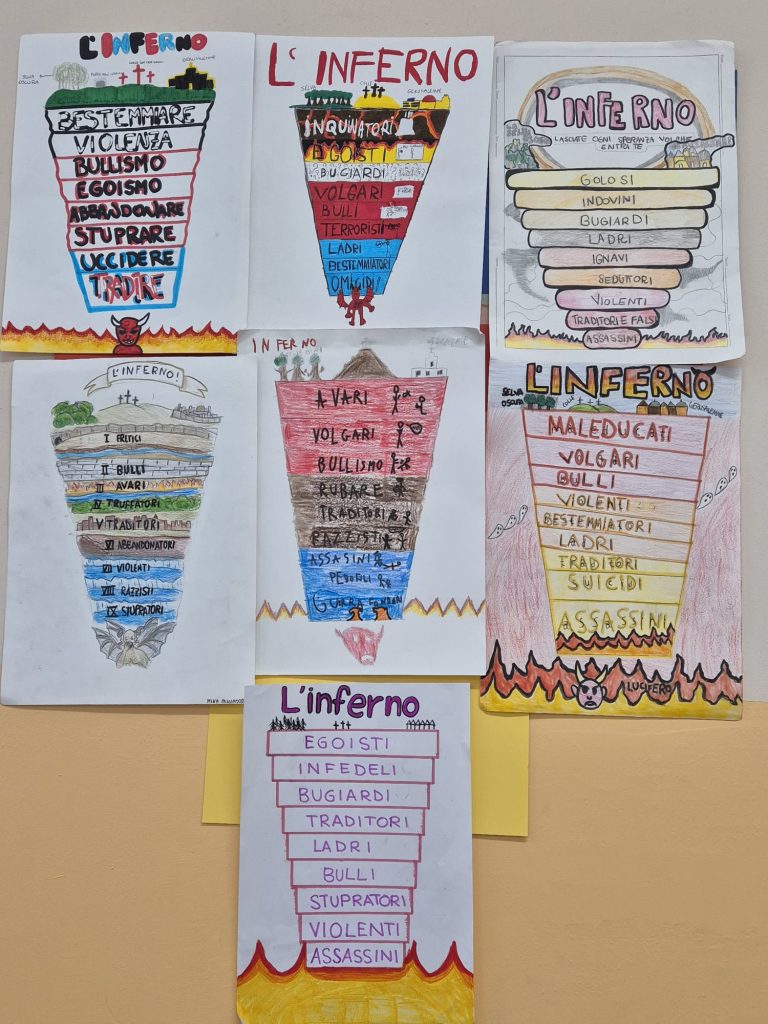 L'INFERNO
SELVA
OSCURA
GERUSALEMME
BESTEMMIARE
VIOLENZA
BULLISMO
EGOISMO
ABBANDONARE
STUPRARE
UCCIDERE
TRADIRE
L'INFERNO
SELVA
COLLE
GERUSALEMME
INQUINATORI
EGOISTI
BUGIARDI
VOLGARI
BULLI
TERRORISTI
LADRI
BESTEMMIATORI
OMICIDI
L'INFERNO
LASCIATE OGNI SPERANZA VOI CHE
ENTRATE
GOLOSI
INDOVINI
BUGIARDI
LADRI
IGNAVI
SEDUTTORI
VIOLENTI
TRADITORI E FALSI
ASSASSINI
L'INFERNO!
I ERETICI
II BULLI
III AVARI
IV TRUFFATORI
V TRADITORI
VI ABBANDONATORI
VII VIOLENTI
VIII RAZZISTI
IX STUPRATORI
INFERNO
AVARI
VOLGARI
BULLISMO
RUBARE
TRADITORI
RAZZISTI
ASSASINI
PEDOFILI
L'INFERNO
SELVA
OSCURA
COLLE
GERUSALEMME
MALEDUCATI
VOLGARI
BULLI
VIOLENTI
BESTEMMIATORI
LADRI
TRADITORI
SUICIDI
ASSASSINI
LUCIFERO
L'inferno
EGOISTI
INFEDELI
BUGIARDI
TRADITORI
LADRI
BULLI
STUPRATORI
VIOLENTI
ASSASSINI